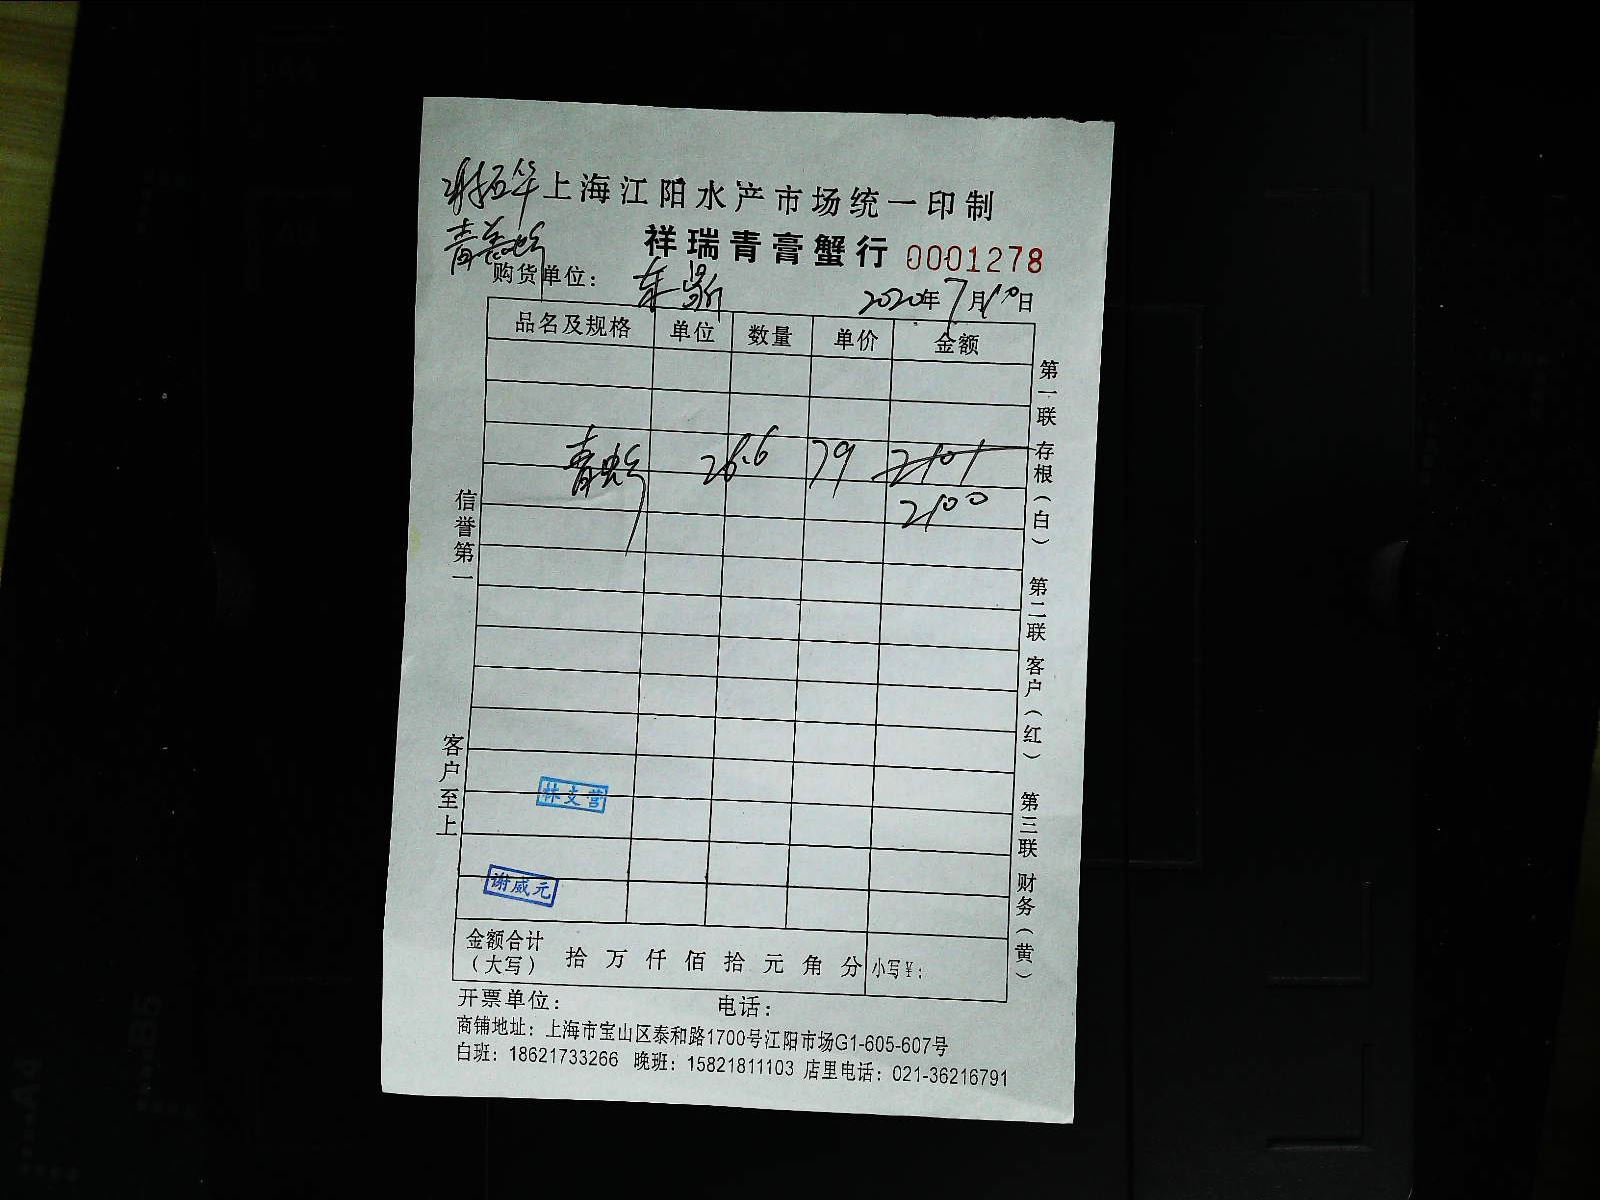 上海江阳水产市场统一印制
祥瑞青膏蟹行 0001278
购货单位： 2020年7月10日
品名及规格 单位 数量 单价 金额
青虾 26.6 79 2101
2100
信誉第一
客户至上
第一联 存根（白） 第二联 客户（红） 第三联 财务（黄）
林支营
谢威元
金额合计（大写） 拾 万 仟 佰 拾 元 角 分 小写¥：
开票单位： 电话：
商铺地址：上海市宝山区泰和路1700号江阳市场G1-605-607号
白班：18621733266 晚班：15821811103 店里电话：021-36216791